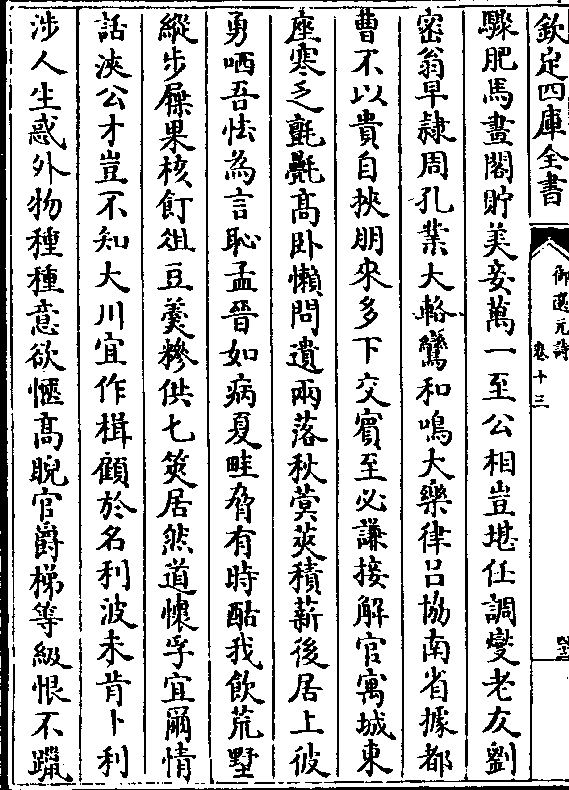 欽定四庫全書
御選元詩
卷十三
驟肥馬畫閣貯美妾萬一至公相豈堪任調燮老友劉
密翁早隷周孔業大輅鸞和鳴大樂律吕協南省據都
曹不以貴自挾朋來多下交賓至必謙接解官寓城東
座寒乏氈㲲髙臥懶問遺兩落秋蓂莢積薪後居上彼
勇哂吾怯為言恥孟晉如病夏畦脅有時酤我飲荒墅
縱步屧果核飣俎豆羮糝供匕筴居然道懷孚宜爾情
話浹公才豈不知大川宜作楫顧於名利波未肯卜利
涉人生惑外物種種意欲愜髙睨官爵梯等級恨不躐